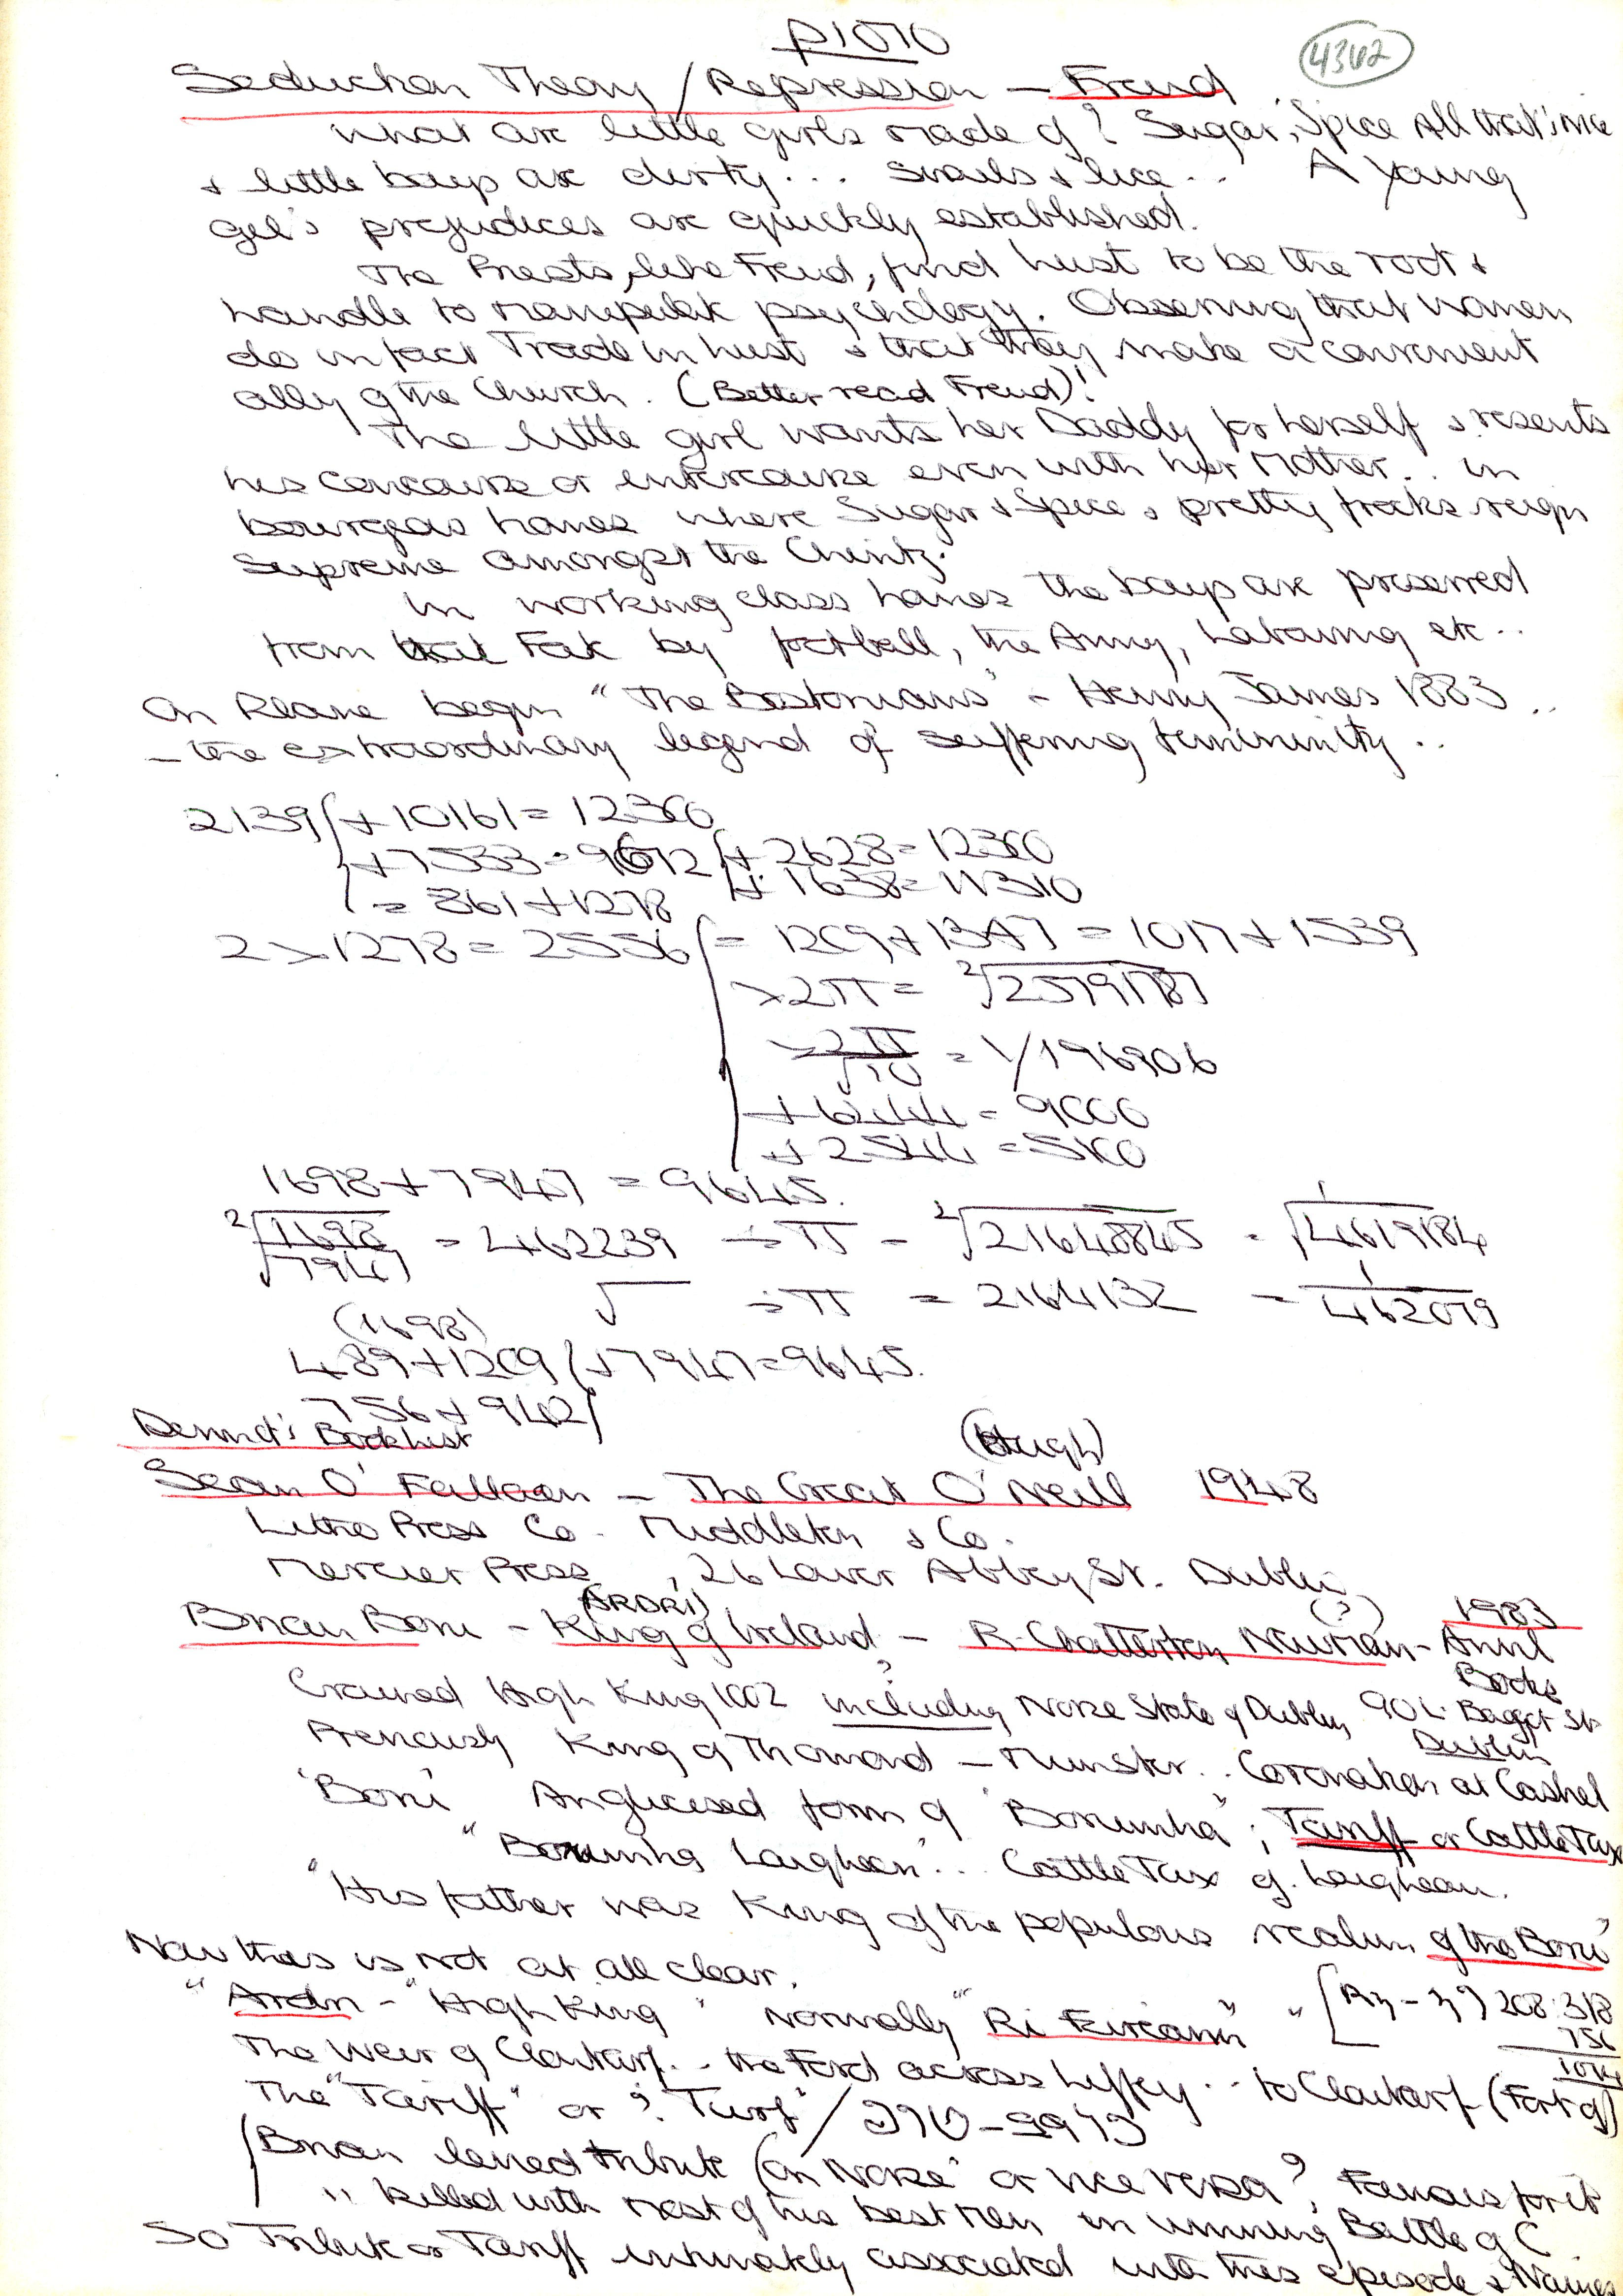 p1070
4362
Seduction Theory / Repression - Freud
What are little girls made of? Sugar, Spice All that's nice
& little boys are dirty... Snails & lice.. A young
gel's prejudices are quickly established.
The Priests, like Freud, find Lust to be the root &
handle to manipulate psychology. Observing that women
do in fact Trade in Lust & that they make a convenient
ally of the Church. (Better read Freud)!
The little girl wants her Daddy for herself & resents
his concourse or intercourse even with her Mother.. in
bourgeois homes where Sugar & Spice & pretty frocks reign
Supreme amongst the Chintz.
In working class homes the boys are preserved
from that Fate by football, the Army, Labouring etc..
On Reave begin "The Bostonians" - Henry James 1883..
- the extraordinary legend of suffering femininity..
2139 + 10161 = 12300
+ 7533 = 9672 + 2628 = 12300
+ 1638 = 11310
= 861 + 1278
2 × 1278 = 2556 = 1209 + 1347 = 1017 + 1539
× 2π = ²√25791787
× 2π/√10 = 1/196906
+ 6444 = 9000
+ 2544 = 5100
1698 + 7947 = 9645.
²√1698/√7947 = 462239 ÷ π = ²√21648845 = 1/√4619184
√ ÷ π = 2164132 = 1/462079
(1698)
489 + 1209 + 7947 = 9645.
756 + 942
Dermot's Booklist
(Hugh)
Sean O' Faolaon - The Great O'Neill 1948
Litho Press Co. Middleton & Co.
Mercier Press, 26 Lower Abbey St. Dublin
(ARDRI) (?) 1983
Brian Boru - King of Ireland - R. Chatterton Newman - Anvil
Books
Crowned High King 1002 including Norse State of Dublin, 90 L. Baggot St
Dublin
Previously King of Thomond - Munster.. Coronation at Cashel
'Boru' Anglicised form of "Borumha"; Tariff or Cattle Tax
"Borumha Laighean".. Cattle Tax of Laighean.
"His father was King of the populous realm of the Boru"
Now this is not at all clear.
"Ardri - "High King" Normally "Ri Eireann" 208:318
756
The Weir of Clontarf.. the Ford across Liffey.. to Clontarf (Fort of)
The "Tariff" or ? "Turf" /
Brian levied tribute (on Norse' or vice versa?, Famous for it
" killed with most of his best men in winning Battle of C
So Tribute or Tariff intimately associated with this episode & Names